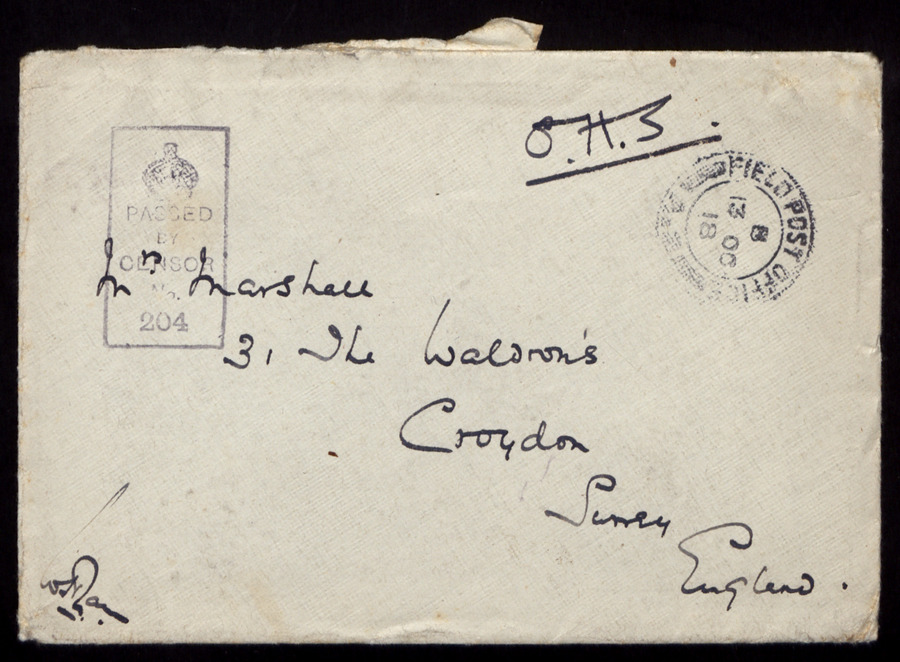 O.H.S.
PASSED
BY
CENSOR
No.
204
FIELD POST OFFICE
B
13 OC
18
Mr Marshall
31 The Waldron's
Croydon
Surrey
England.